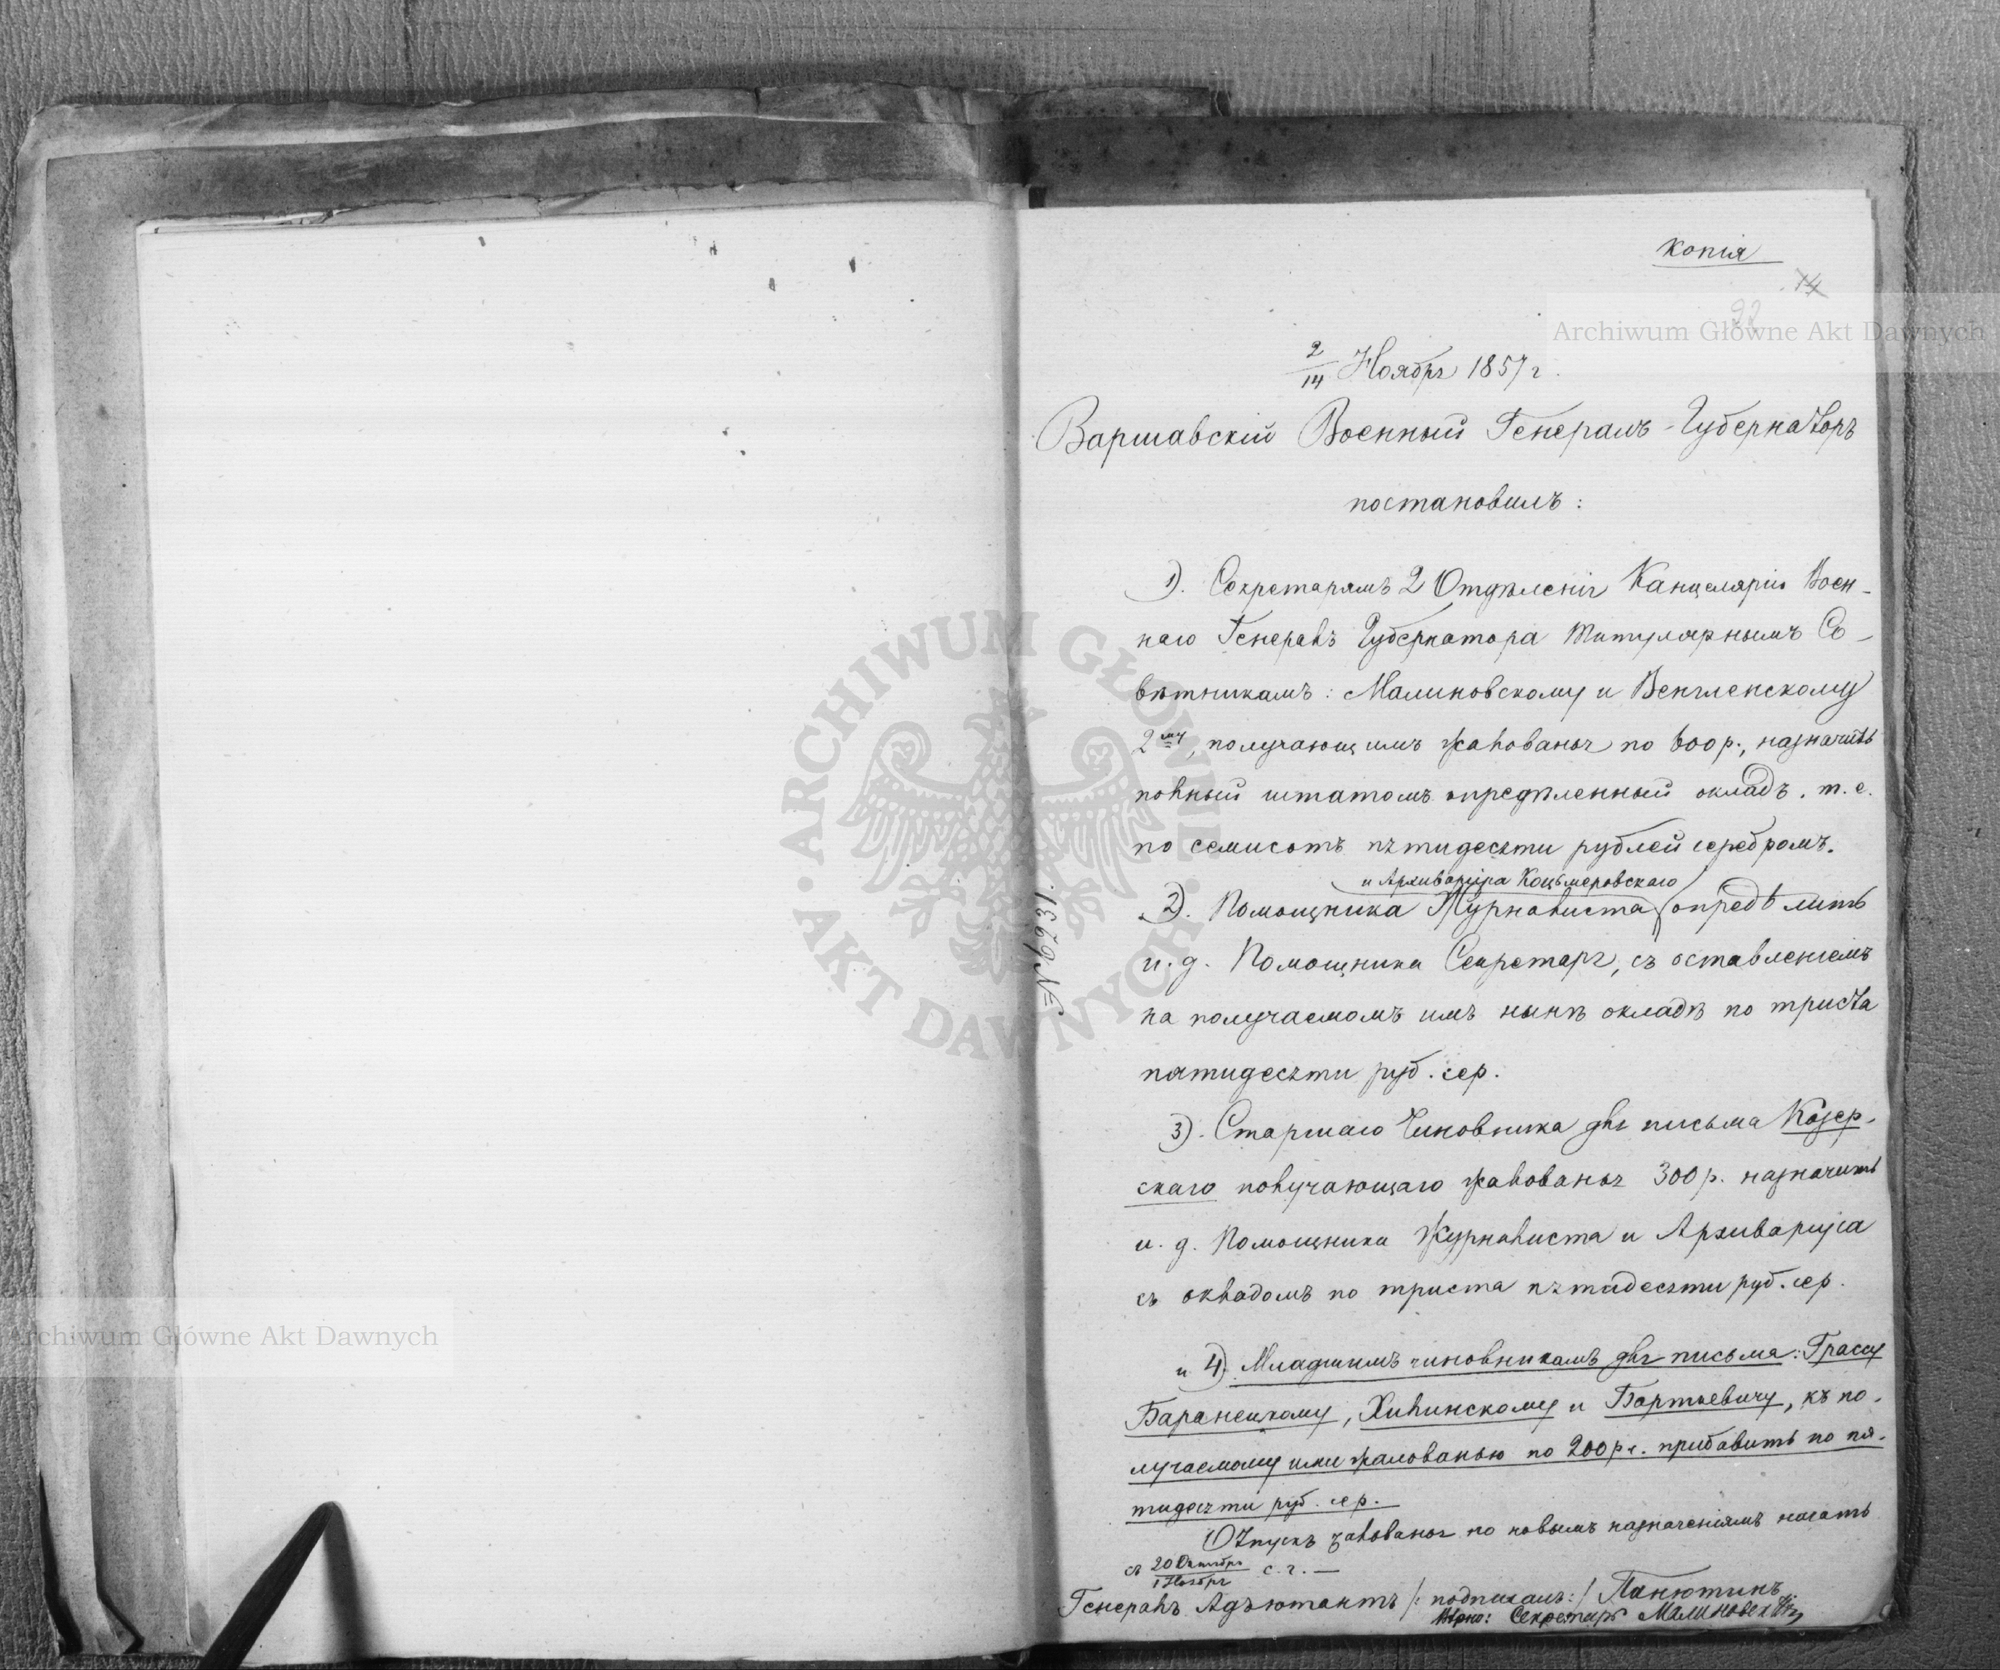 Копія
14
92
2/14 Ноября 1857 г.
Варшавскій Военный Генералъ-Губернаторъ
постановилъ:
1). Секретарямъ 2 Отдѣленія Канцеляріи Воен-
наго Генералъ Губернатора Титулярнымъ Со-
вѣтникамъ: Малиновскому и Венгленскому
2му, получающимъ жалованья по 600 р., назначить
полный штатомъ опредѣленный окладъ, т.е.
по семисотъ пятидесяти рублей серебромъ.
и Архиваріуса Коцьмеровскаго
2). Помощника Журналиста опредѣлить
и. д. Помощника Секретаря, съ оставленіемъ
на получаемомъ имъ нынѣ окладѣ по триста
пятидесяти руб. сер.
№ 6931.
3). Старшаго Чиновника для письма Козер-
скаго получающаго жалованья 300 р. назначить
и. д. Помощника Журналиста и Архиваріуса
съ окладомъ по триста пятидесяти руб. сер.
и 4). Младшимъ чиновникамъ для письма: Грассу
Баранецкому, Хилинскому и Бортьевичу, къ по-
лучаемому ими жалованью по 200 р с. прибавить по пя-
тидесяти руб. сер.
Отпускъ жалованья по новымъ назначеніямъ начать
съ 20 Октября/1 Ноября с. г. —
Генералъ Адъютантъ /: подписалъ: / Панютинъ.
Вѣрно: Секретарь Малиновскій
Archiwum Główne Akt Dawnych
Archiwum Główne Akt Dawnych
ARCHIWUM GŁÓWNE AKT DAWNYCH